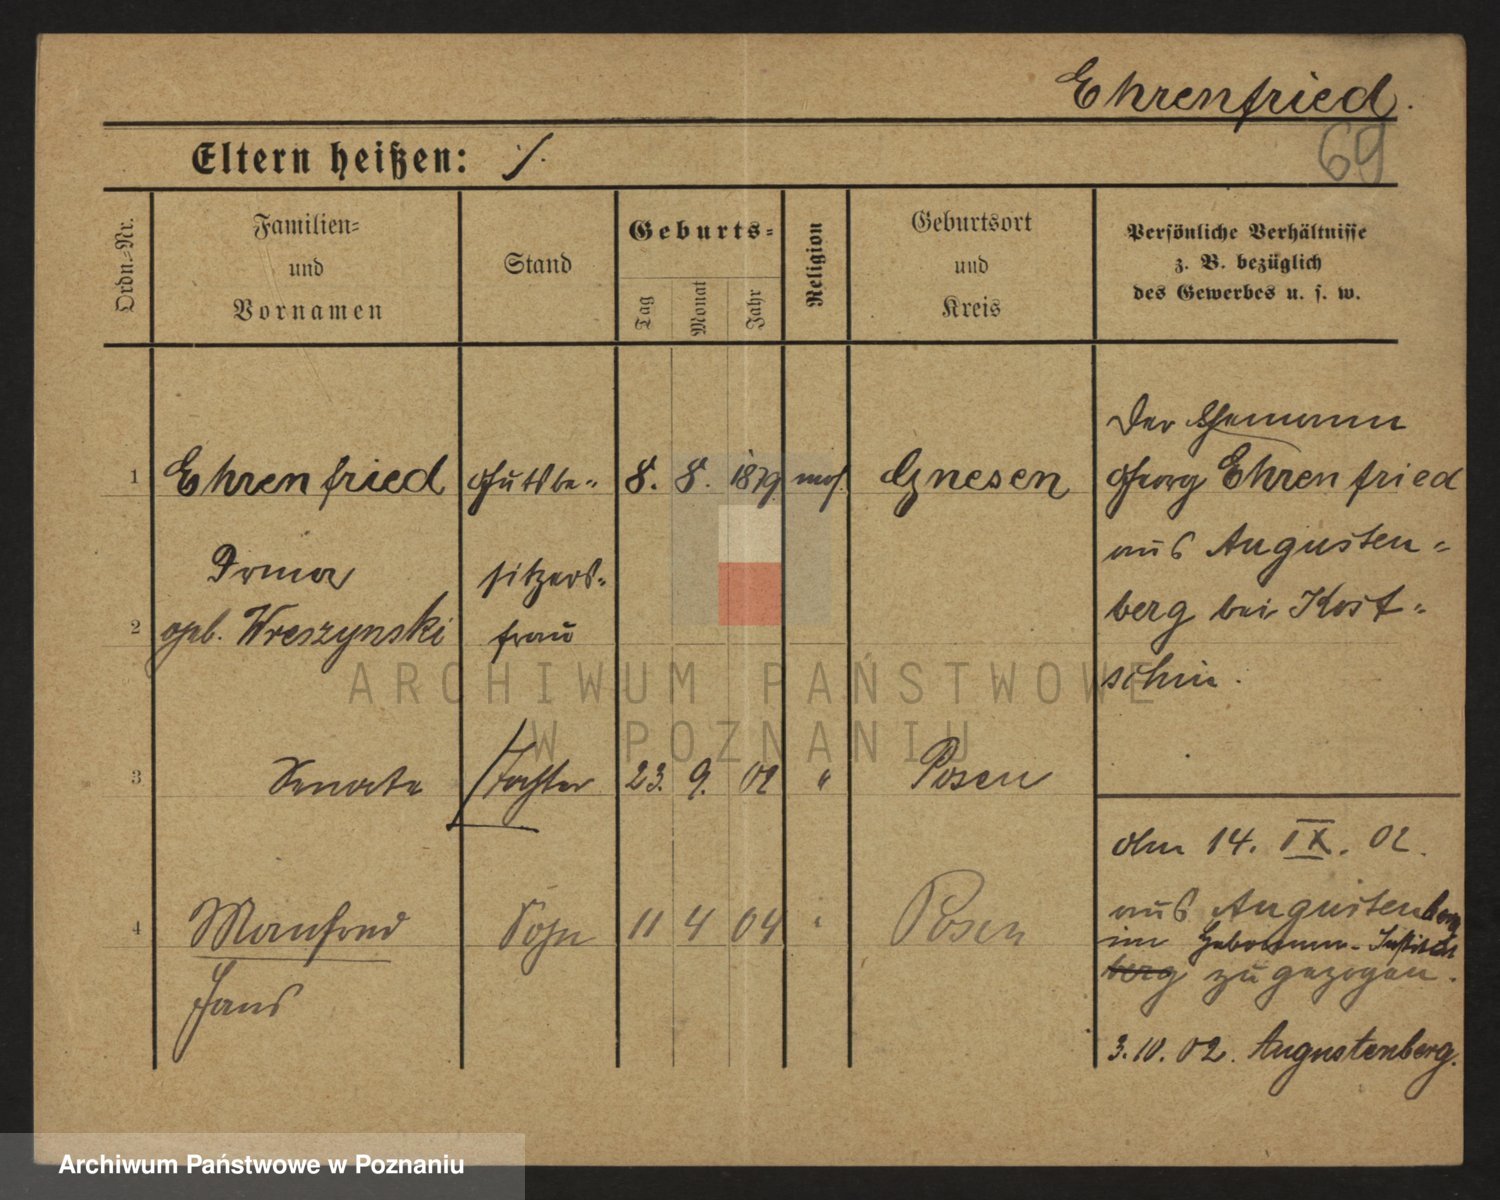 Ehrenfried.
69
Eltern heißen: ./.
Ordn.-Nr.
Familien-
und
Vornamen
Stand
Geburts-
Tag
Monat
Jahr
Religion
Geburtsort
und
Kreis
Persönliche Verhältnisse
z. B. bezüglich
des Gewerbes u. s. w.
Der Ehemann
1 Ehrenfried Gutsbe- 8. 8. 1879 mos. Gnesen Georg Ehrenfried
aus Augusten-
Irma sitzers-
2 geb. Wreszynski frau berg bei Kost-
schin.
3 Renate Tochter 23. 9. 02 " Posen
am 14. IX. 02.
aus Augustenberg
4 Manfred Sohn 11 4 04 " Posen
im Hebammen-Institut
berg zugezogen.
Hans
3.10.02. Augustenberg.
ARCHIWUM PAŃSTWOWE
W POZNANIU
Archiwum Państwowe w Poznaniu